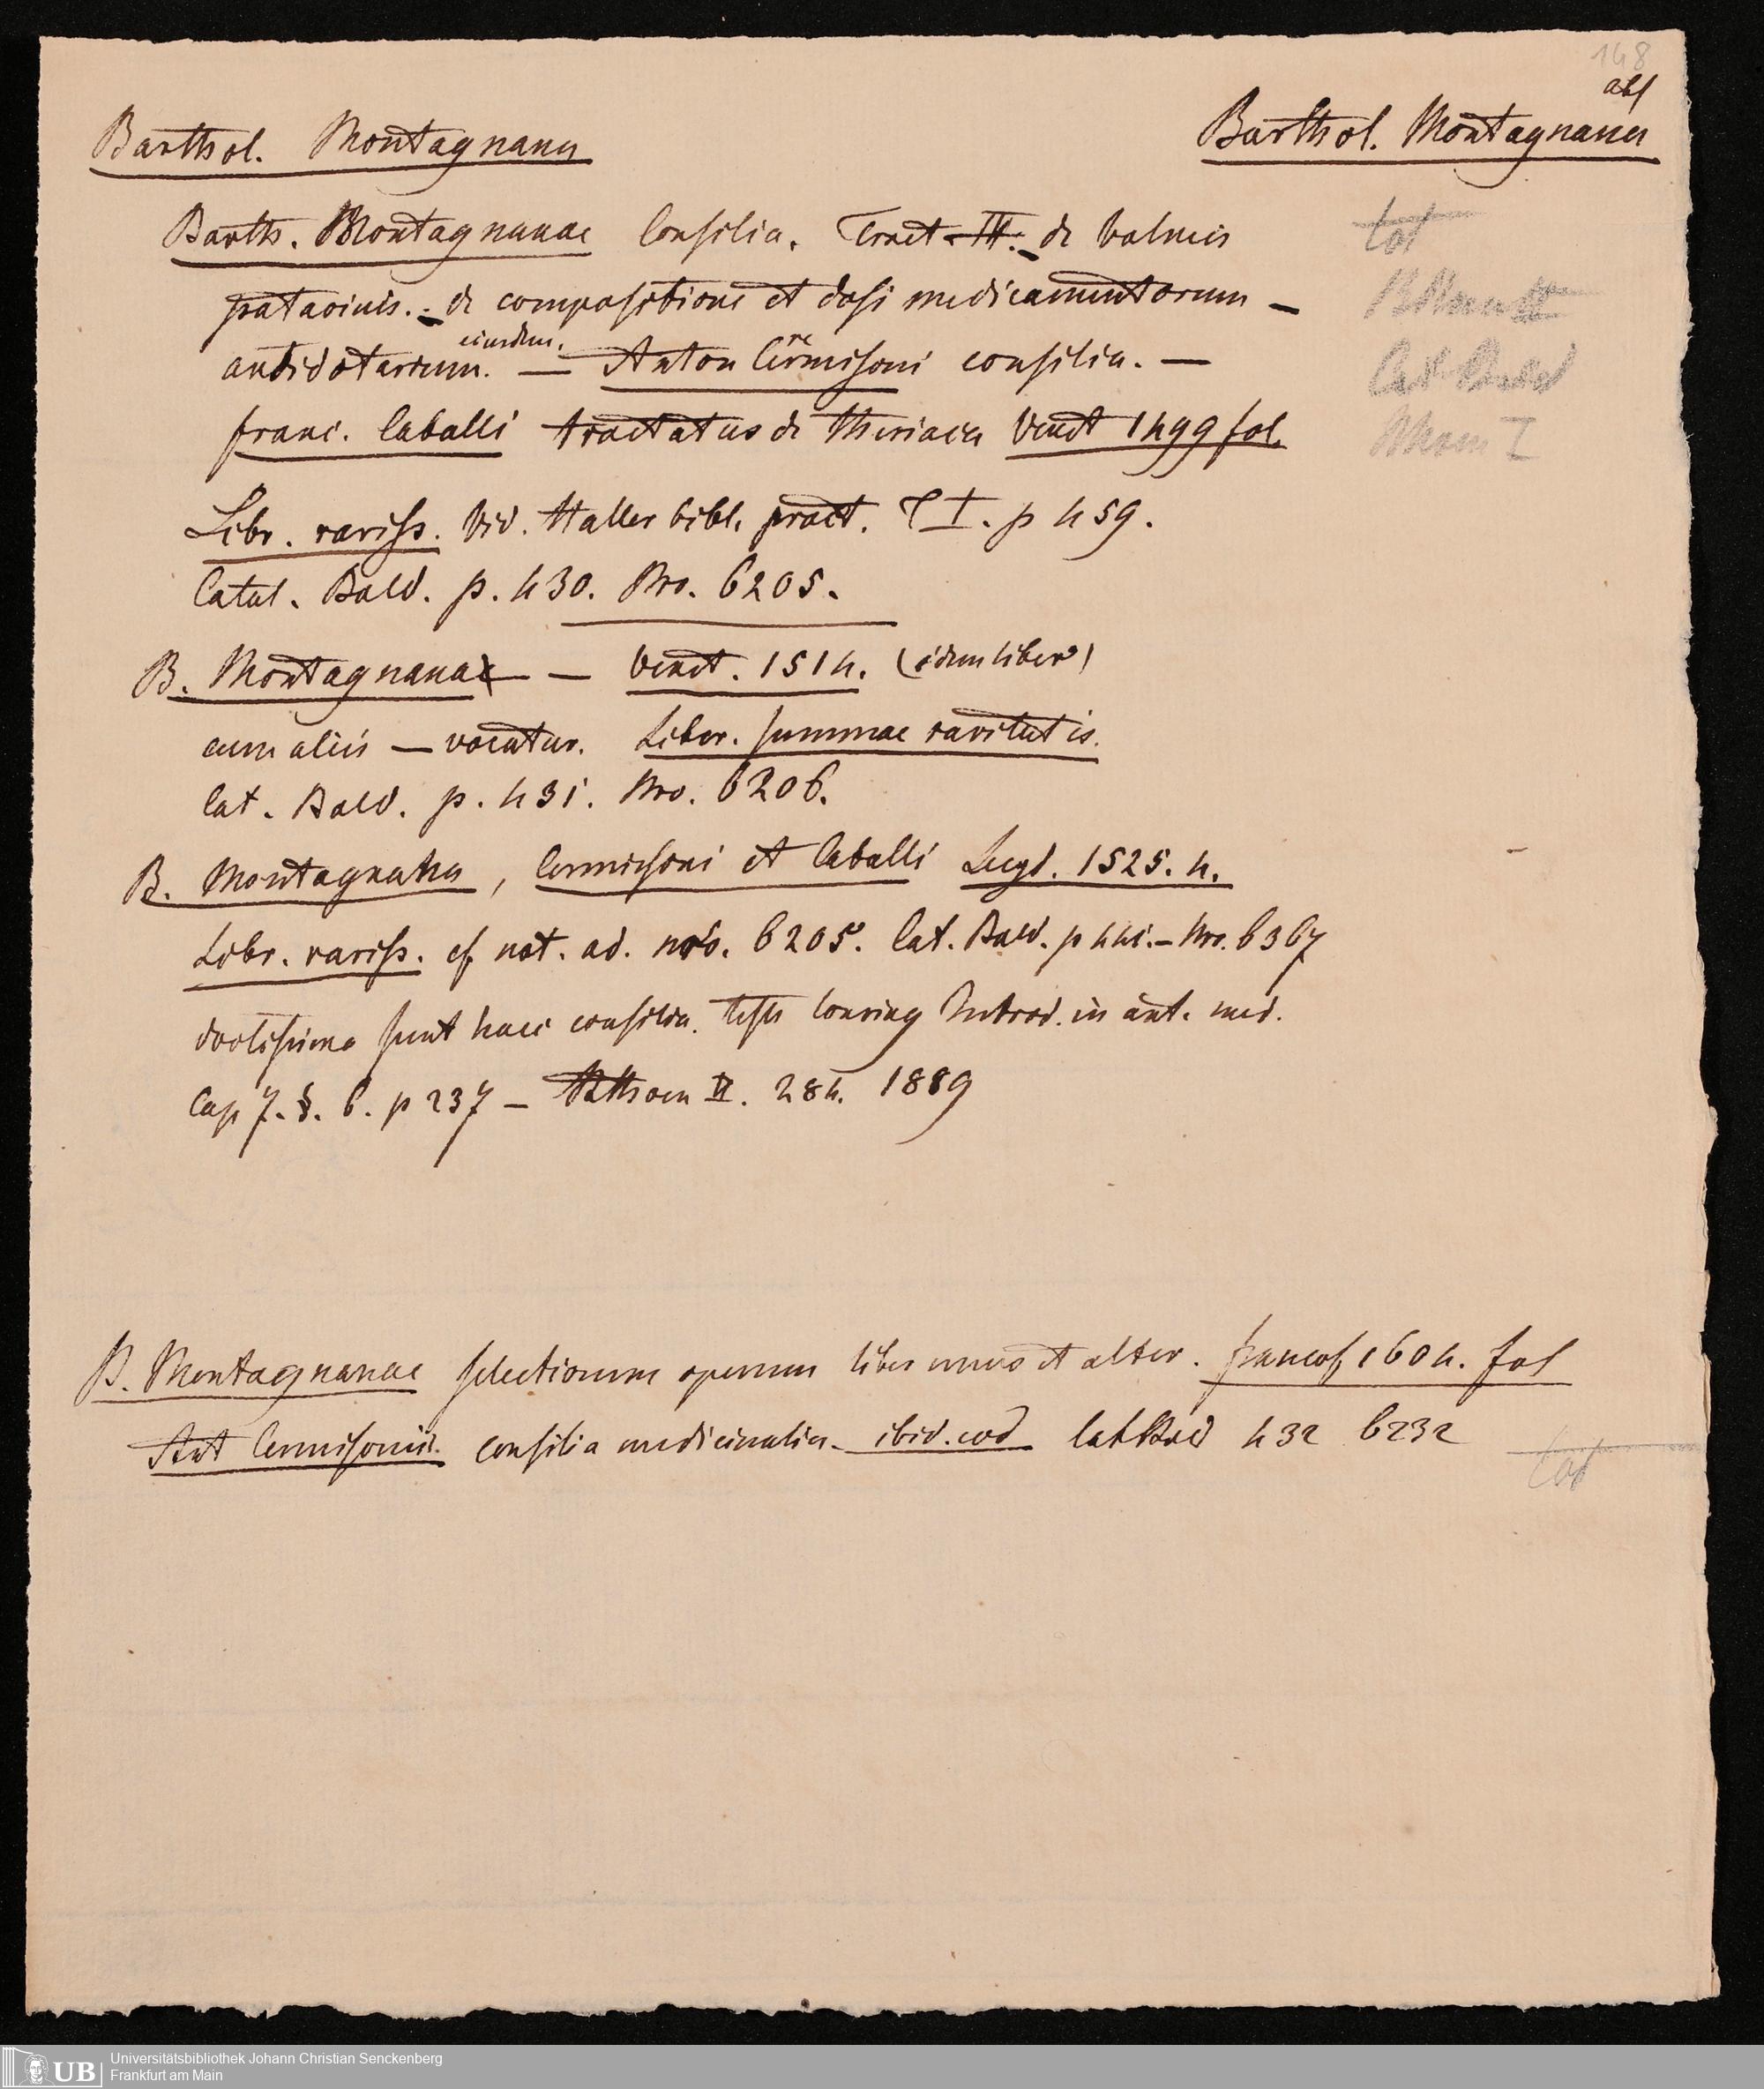 148
abl
Barthol. Montagnana
Barthol. Montagnana
Barth. Montagnanae Consilia. Tract III. de balneis
patavinis. - de compositione et dosi medicamentorum -
antidotarium. eiusdem. - Anton Cermisoni consilia. -
franc. Caballi tractatus de theriaca Venet 1499 fol.
Libr. rariss. Vid. Haller bibl. pract. T I. p 459.
Catal. Bald. p. 430. Nro. 6205.
B. Montagnana - Venet. 1514. (idem liber)
cum aliis - vocatur. Liber. summae raritatis.
Cat. Bald. p. 431. Nro. 6206.
B. Montagnana, Cermisoni et Caballi Lugd. 1525. 4.
Libr. rariss. cf not. ad. nro. 6205. Cat. Bald. p 441. - Nro. 6367
doctissima sunt haec consilia. teste Conring Introd. in art. med.
Cap 7. §. 6. p 237 - II. 284. 1889
B. Montagnanae selectiorum operum liber unus et alter. francof 1604. fol
Ant Cermisonii. consilia medicinalia. ibid. eod Cat Bald 432 6232
tot
Cat Bald
I
tot
Universitätsbibliothek Johann Christian Senckenberg
Frankfurt am Main
UB